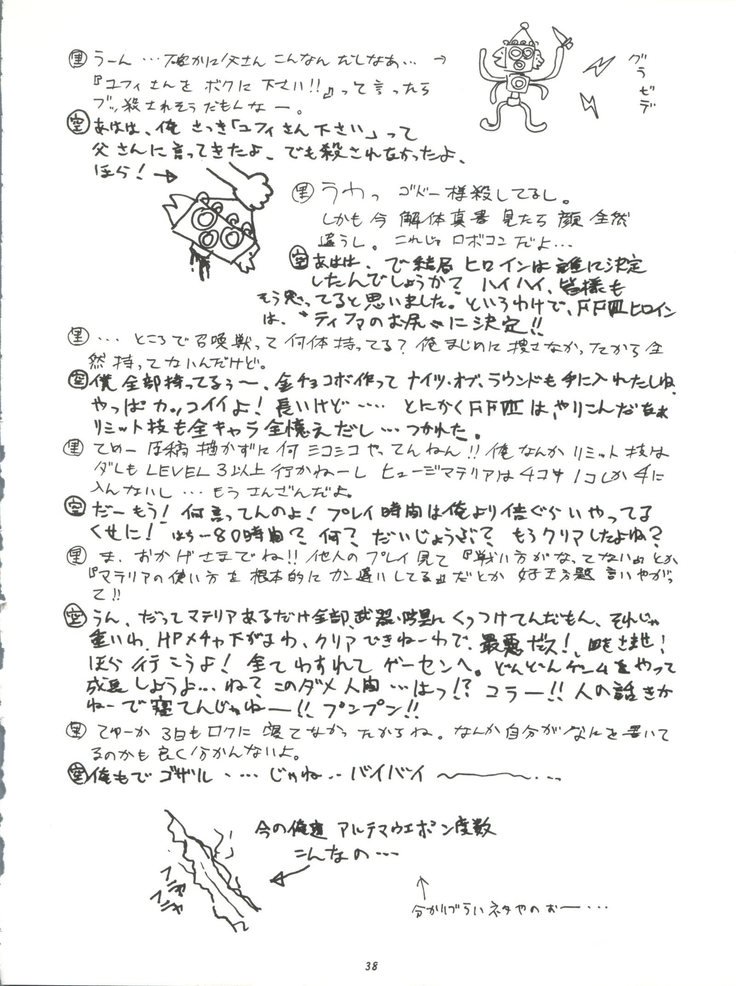 黒 うーん…確かに父さん こんなんだしなあ… →
『ユフィさんを ボクに下さい!!』って言ったら
ブッ殺されそうだもんなー。
グラゼデ
空 あはは、俺 さっき「ユフィさん下さい」って
父さんに言ってきたよ、でも殺されなかったよ、
ほら! →
黒 うわっ ゴドー様殺してるし。
しかも今 解体真書 見たら 顔 全然
違うし。これじゃ ロボコンだよ…
空 あはは、で結局 ヒロインは 誰に決定
したんでしょうか? ハイハイ、皆様も
そう思ってると思いました。というわけで、FFⅦヒロイン
は、"ティファのお尻"に決定!!
黒 …ところで召喚獣って何体持ってる? 俺まじめに捜さなかったから全
然持ってないんだけど。
空 僕全部持ってるぅ〜、金チョコボ作ってナイツ・オブ・ラウンドも手に入れたしね、
やっぱカッコイイよ! 長いけど…… とにかくFFⅦは、やりこんだなぁ
リミット技も全キャラ全憶えだし…つかれた。
黒 てめー原稿描かずに何コシコシやってんねん!! 俺なんかリミット技は
ダレもLEVEL3以上行かねーし ヒュージマテリアは4コ中1コしか手に
入んないし…もうさんざんだよ。
空 だーもう! 何言ってんのよ! プレイ時間は俺より倍ぐらいやってる
くせに! はち…80時間? 何? だいじょうぶ? もうクリアしたよね?
黒 ま、おかげさまでね!! 他人のプレイ見て『戦い方がなってない』とか
『マテリアの使い方を根本的にカン違いしてる』だとか 好き方題言いやがっ
て!!
空 うん、だってマテリアあるだけ全部、武器・防具にくっつけてんだもん、それじゃ
重いわ、HPメチャ下がるわ、クリアできねーわで、最悪だス!
ほら行こうよ! 全てわすれてゲーセンへ。どんどんゲームをやって
成長しようよ…ね? このダメ人間…はっ!? コラー!! 人の話きか
ねーで寝てんじゃねー!! プンプン!!
黒 てゆーか3日もロクに寝てなかったからね。なんか自分がなんを書いて
るのかも良く分かんないよ。
空 俺もでゴザル …… じゃね… バイバイ 〜…
今の俺達 アルテマウエポン度数
こんなの…
フニャ フニャ
↑
分かりづらいネタやのおー…
38